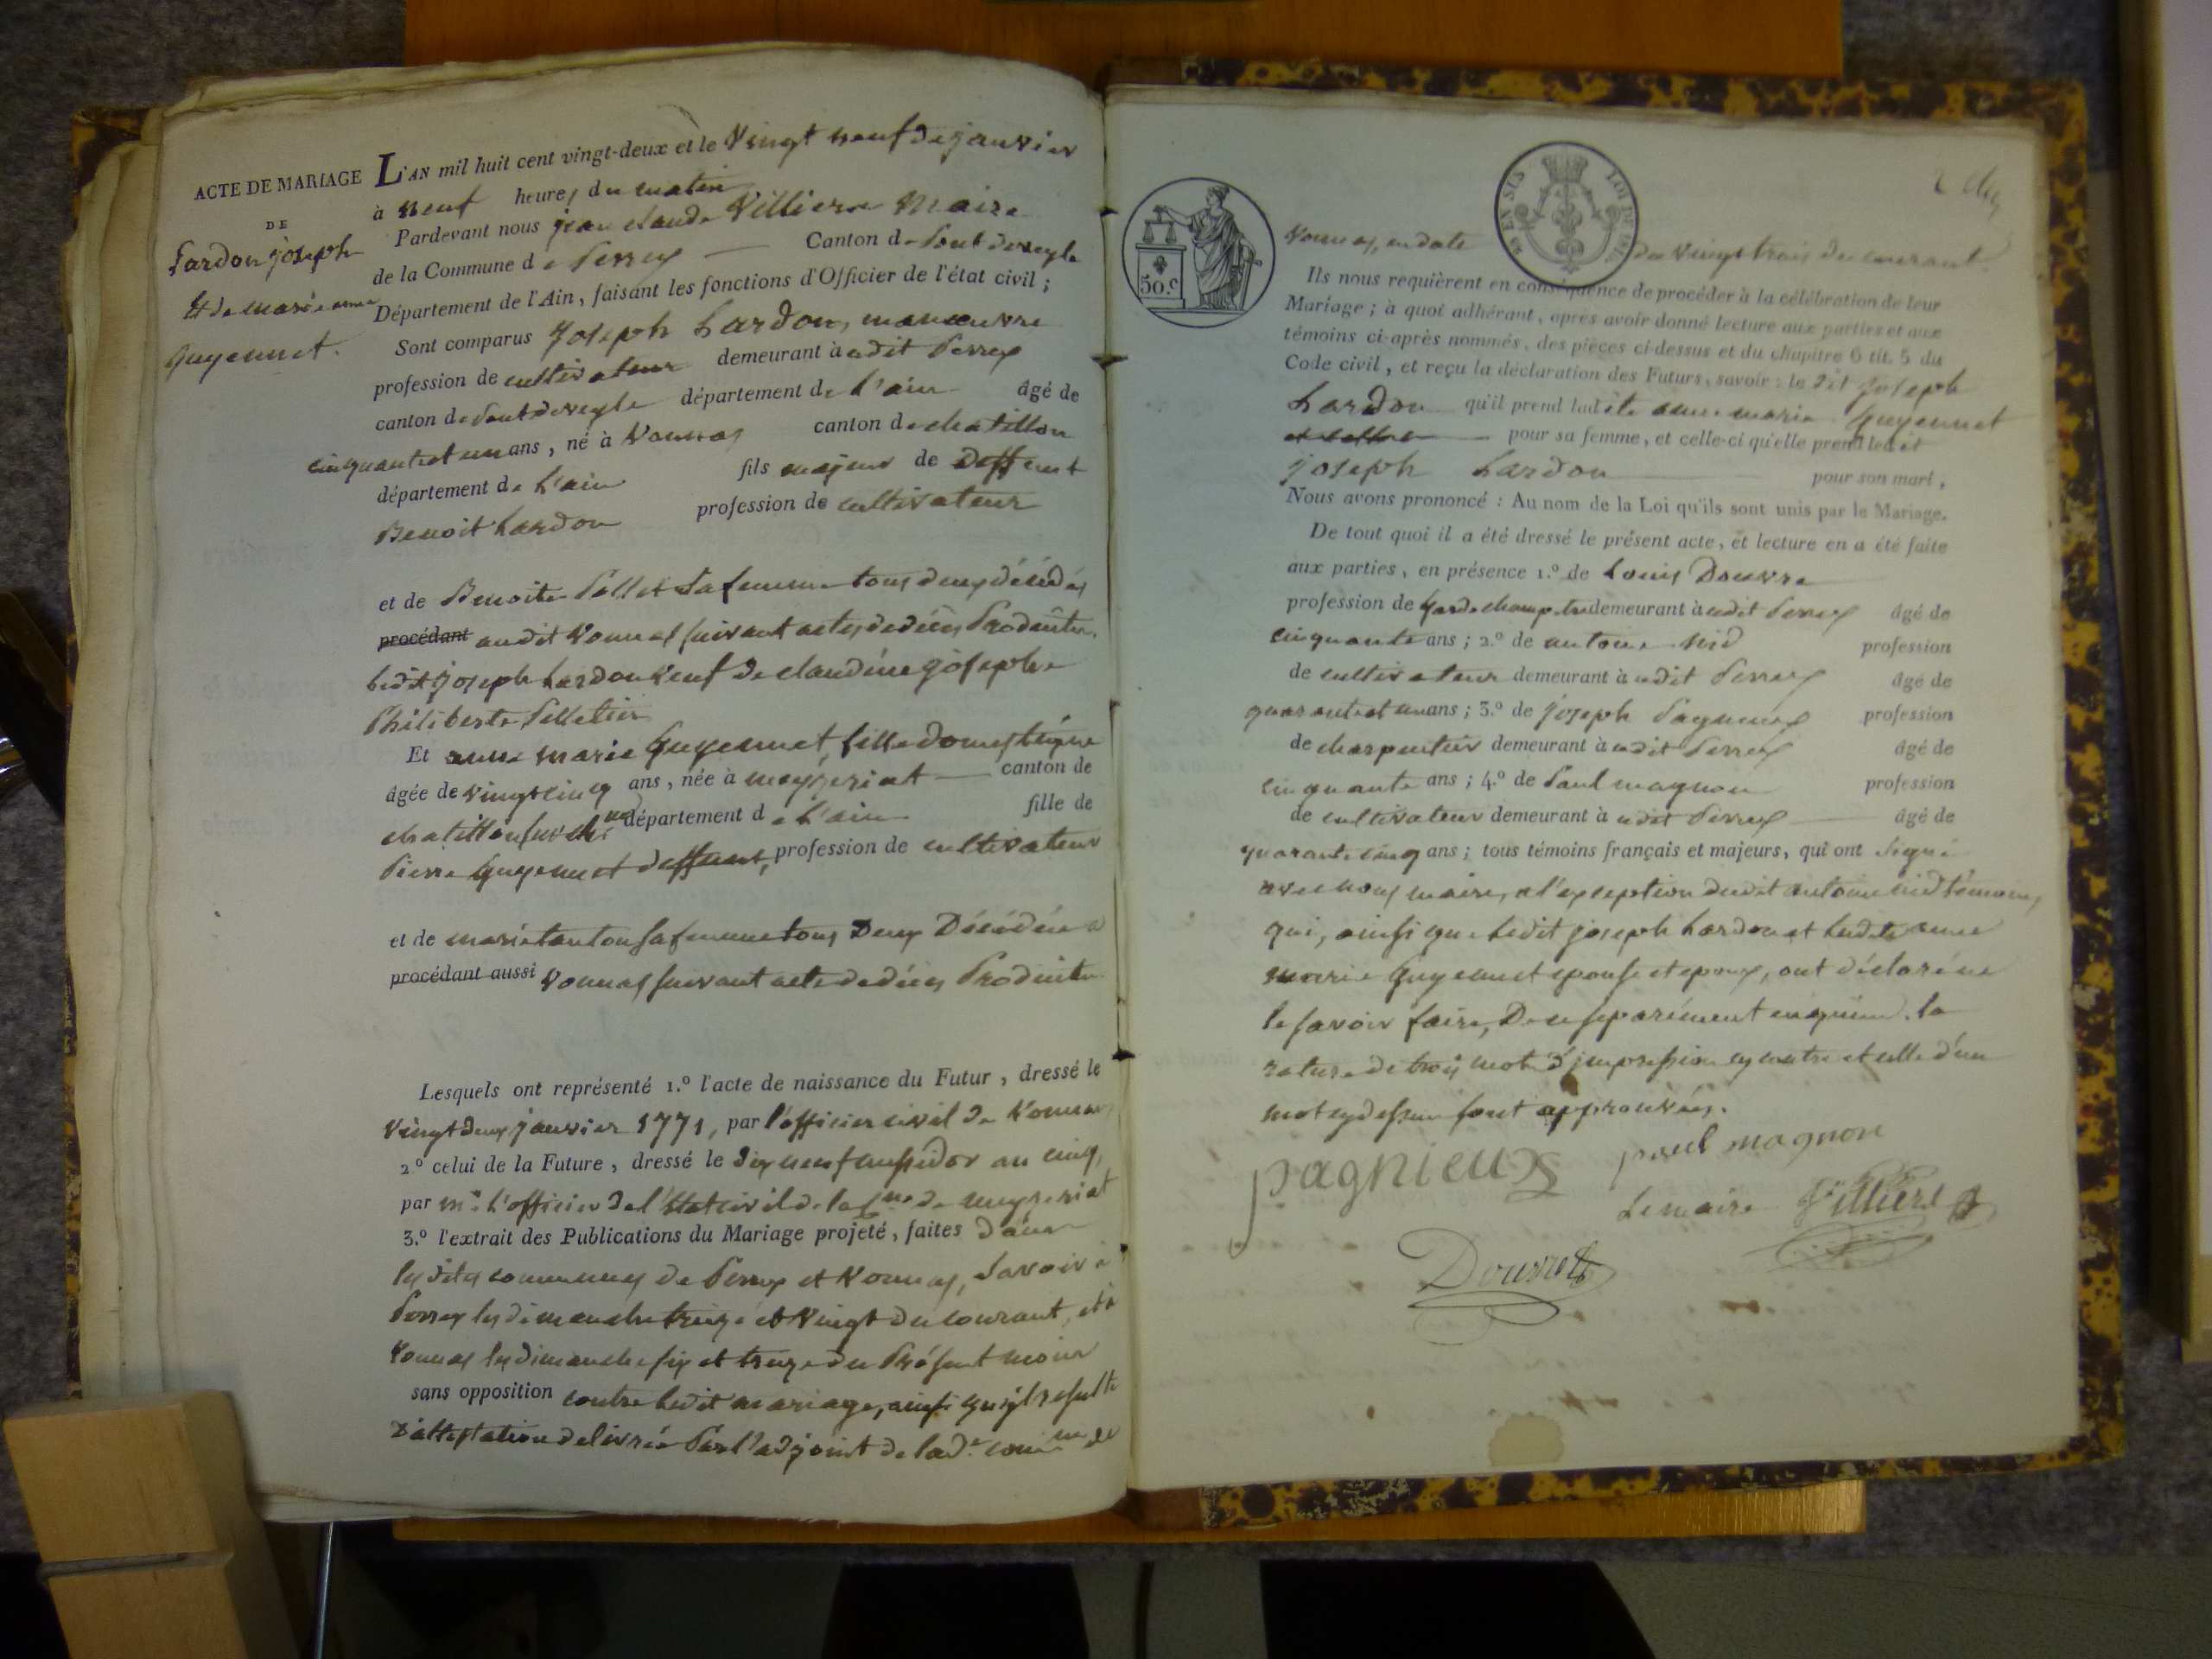 ACTE DE MARIAGE
DE
Lardon joseph
Et de marie anne
guyennet.
L'AN mil huit cent vingt-deux et le Vingt neuf de janvier
à neuf heures du matin
Pardevant nous jean claude Villiere Maire
de la Commune de Perrex Canton de Pont deveyle
Département de l'Ain, faisant les fonctions d'Officier de l'état civil ;
Sont comparus Joseph Lardon, manœuvre
profession de cultivateur demeurant à udit Perrex
canton de Pont deveyle département de L'ain âgé de
cinquante et un ans, né à Vonnas canton de chatillon
département de L'ain fils majeur de deffunt
Benoit Lardon profession de cultivateur
et de Benoite Pellet Sa femme tous deux décédés
procédant audit Vonnas suivant actes de décès Produits.
Ledit Joseph Lardon Veuf de claudine josephe
Philiberte Pelletier
Et anne marie guyennet, fille domestique
âgée de vingt cinq ans, née à mezeriat canton de
chatillon sur ch.ne département de L'ain fille de
Pierre guyennet deffunt, profession de cultivateur
et de marie tanton sa femme tous Deux Décédés a
procédant aussi Vonnas suivant acte de décès Produits
Lesquels ont représenté 1.º l'acte de naissance du Futur, dressé le
Vingt deux janvier 1771, par l'officier civil de Vonnas
2.º celui de la Future, dressé le dix neuf messidor an cinq,
par mr. L'officier de l'Etat civil de la c.ne de mezeriat
3.º l'extrait des Publications du Mariage projeté, faites dans
les dites communes de Perrex et Vonnas, Savoir à
Perrex les dimanche treize et Vingt du courant, et à
Vonnas les dimanche six et treize du Présent mois
sans opposition contre ledit mariage, ainsi qu'il resulte
D'attestation delivrée Par l'adjoint de lad.e comm.ne de
50.c
Vonnas, en date du vingt trois du courant.
Ils nous requièrent en conséquence de procéder à la célébration de leur
Mariage ; à quoi adhérant, après avoir donné lecture aux parties et aux
témoins ci-après nommés, des pièces ci-dessus et du chapitre 6 tit. 5 du
Code civil, et reçu la déclaration des Futurs, savoir : le dit Joseph
Lardon qu'il prend ladite anne marie Guyennet
pour sa femme, et celle-ci qu'elle prend ledit
Joseph Lardon pour son mari,
Nous avons prononcé : Au nom de la Loi qu'ils sont unis par le Mariage.
De tout quoi il a été dressé le présent acte, et lecture en a été faite
aux parties, en présence 1.º de Louis Douvre
profession de garde champetre demeurant à udit Perrex âgé de
cinquante ans ; 2.º de antoine nid profession
de cultivateur demeurant à udit Perrex âgé de
quarante et un ans ; 3.º de Joseph Pagnieux profession
de charpentier demeurant à udit Perrex âgé de
cinquante ans ; 4.º de Paul magnon profession
de cultivateur demeurant à udit Perrex âgé de
quarante cinq ans ; tous témoins français et majeurs, qui ont signé
avec nous maire, a l'exseption dudit antoine nid témoins,
qui, ainsi que ledit joseph Lardon et ladite anne
marie Guyennet epouse et epoux, ont déclaré ne
le savoir faire, De ce separément enquis. la
rature de trois mot d'jmpression cy contre et celle d'un
mot cy dessus sont approuvées.
pagnieux paul magnon
Le maire Villiere
Douvre